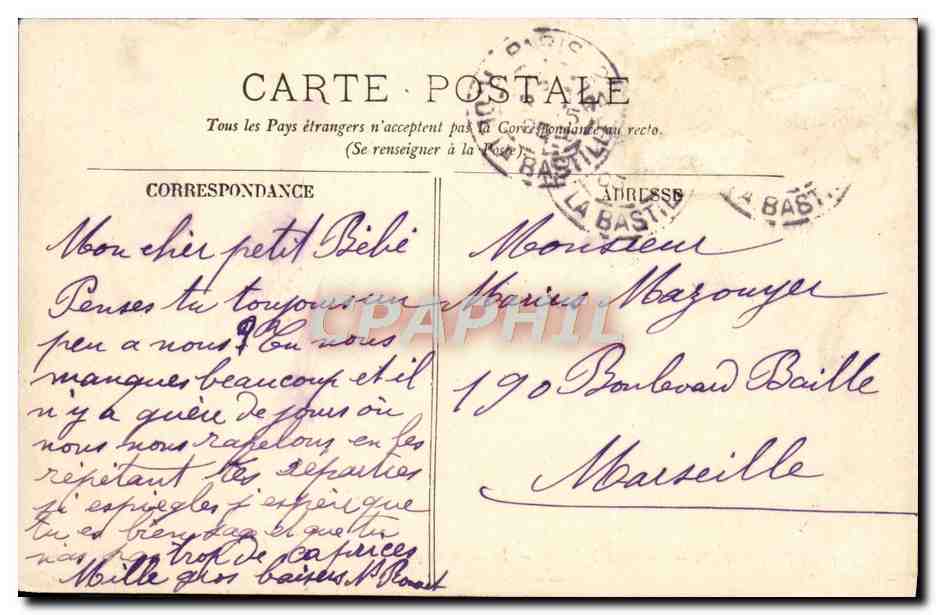 CARTE POSTALE
Tous les Pays étrangers n'acceptent pas la Correspondance au recto.
(Se renseigner à la Poste)
CORRESPONDANCE
Mon cher petit Bébé
Penses tu toujours un
peu a nous? Tu nous
manques beaucoup et il
n'y a guère de jours où
nous nous rapelons en les
répétant tes reparties
si espiegles j'espère que
tu es bien sage et que tu
n'as pas trop de caprices
Mille gros baisers
ADRESSE
Monsieur
Marius Mazouyer
190 Boulevard Baille
Marseille
PARIS
LA BASTILLE
LA BASTILLE
LA BASTI
CPAPHIL